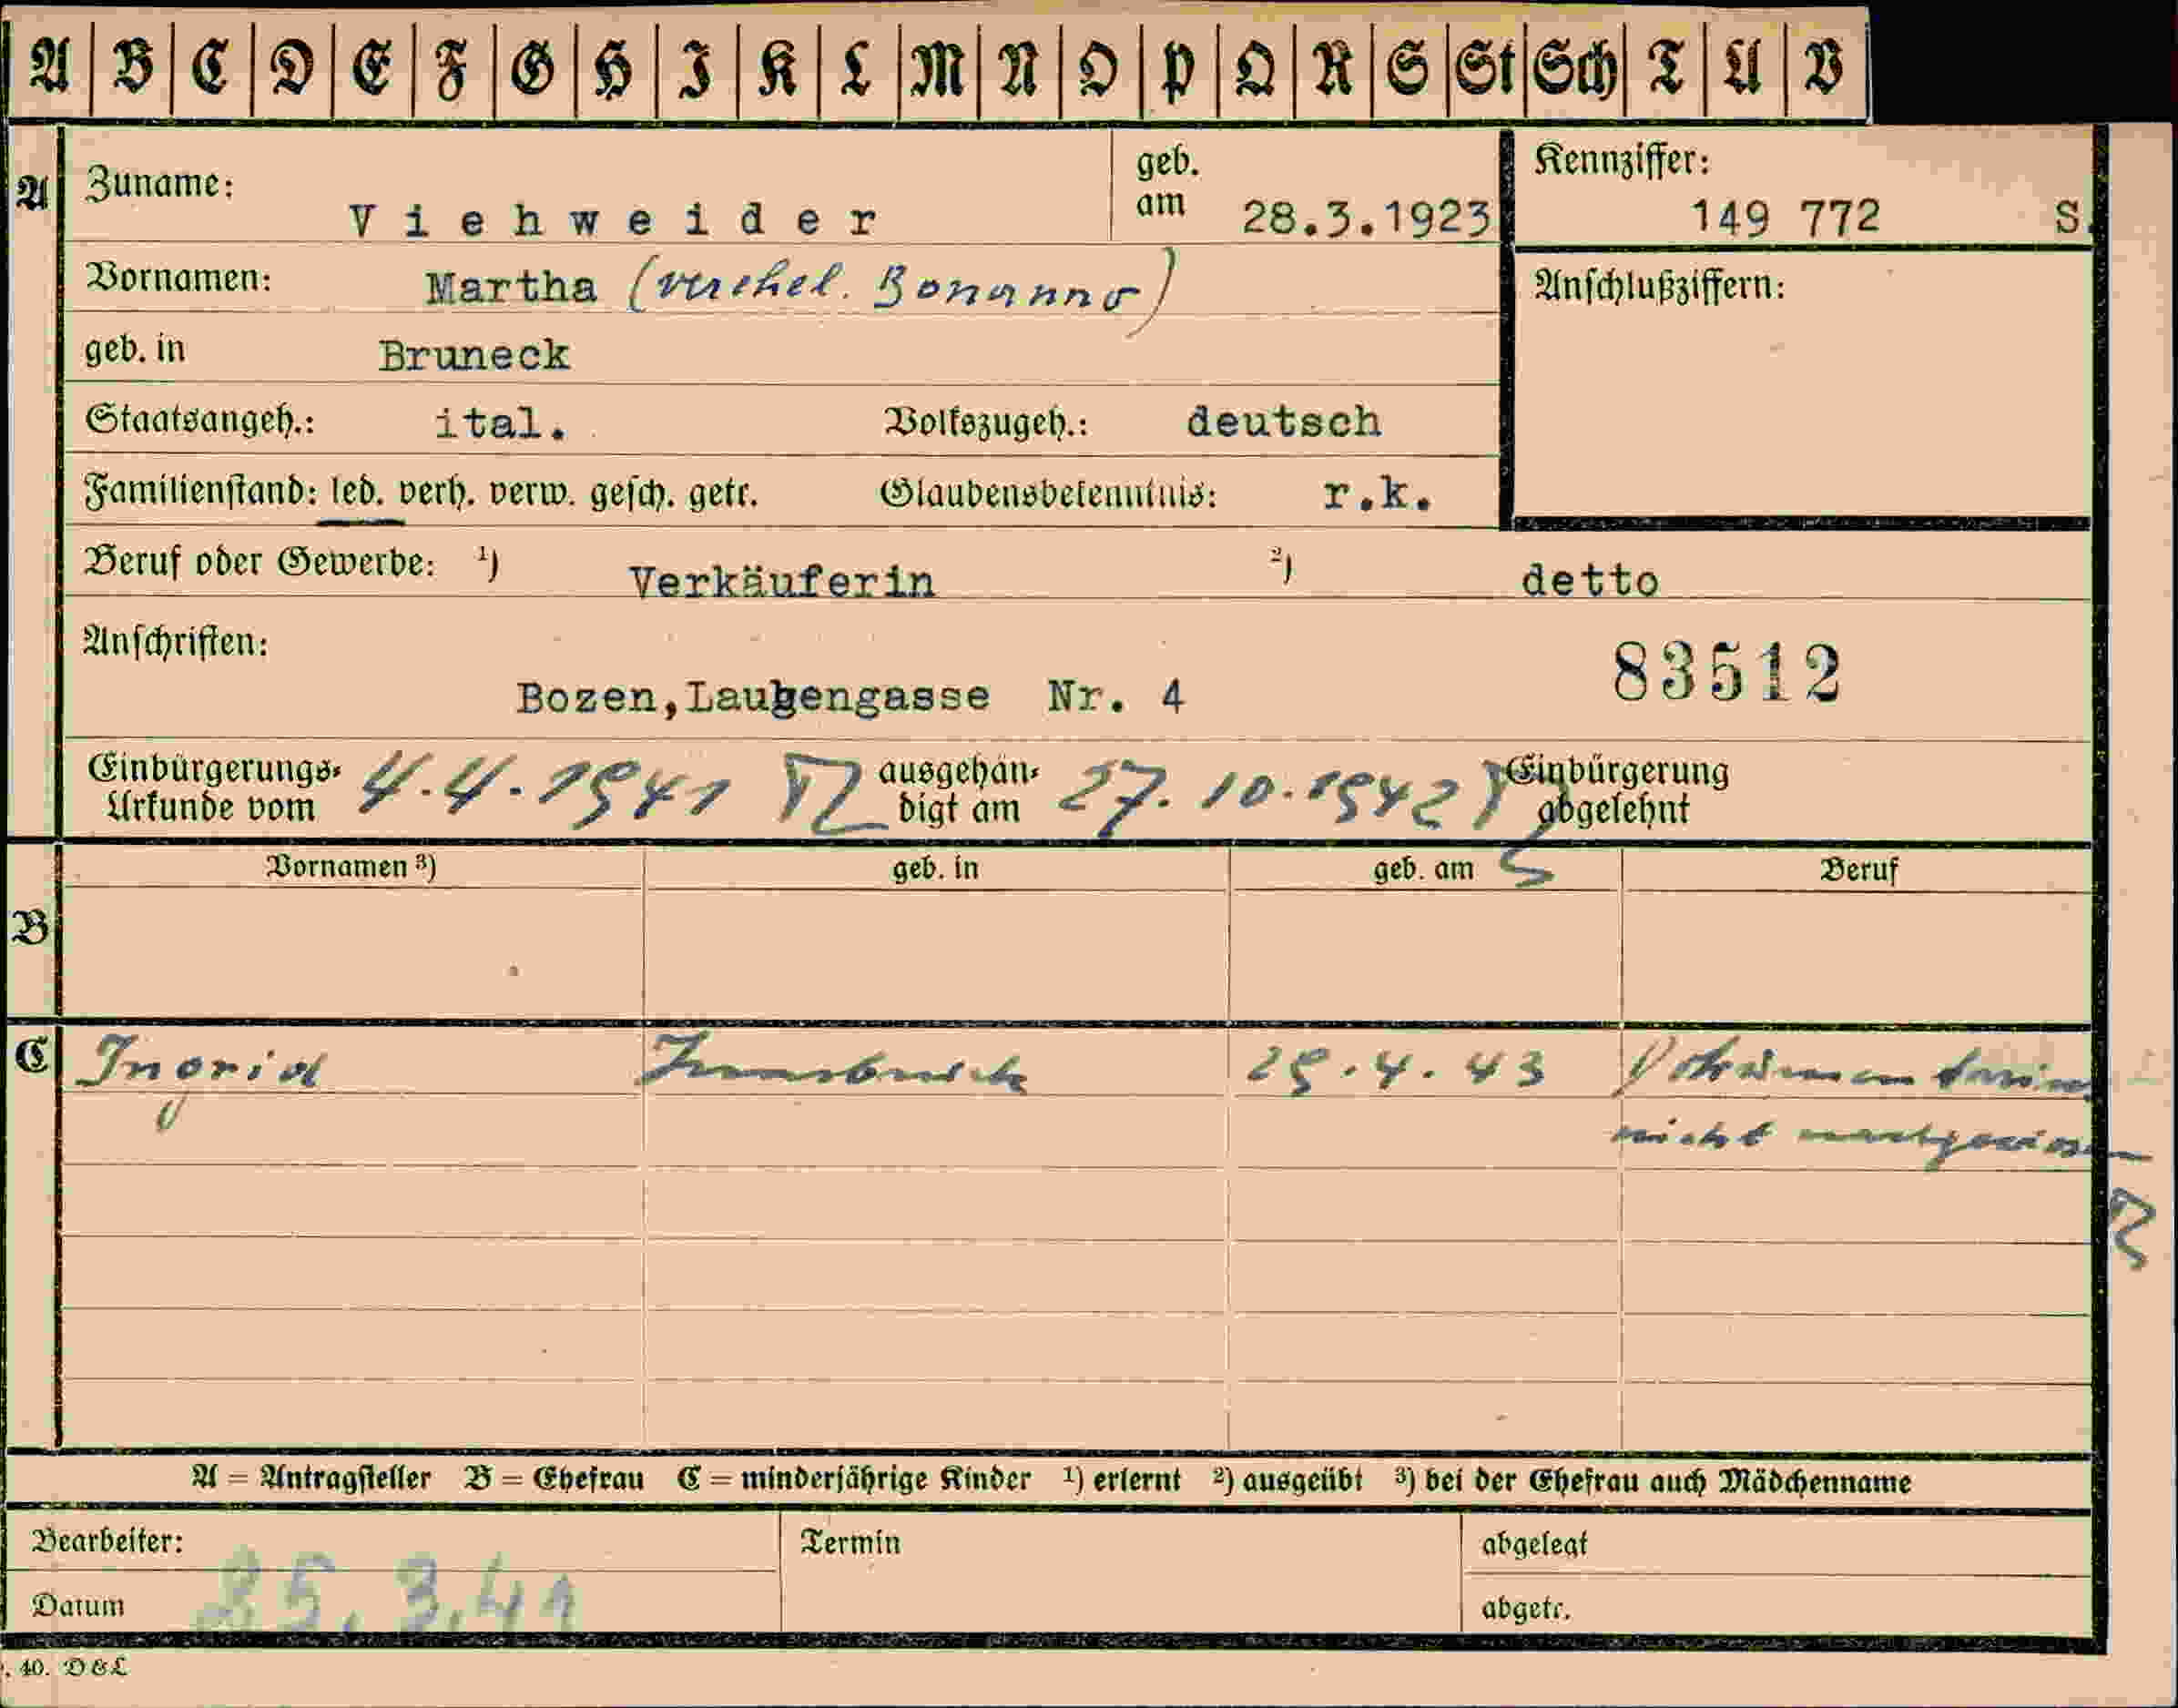 A B C D E F G H I K L M N O P Q R S St Sch T U V
A Zuname: Viehweider geb. am 28.3.1923 Kennziffer: 149 772 S.
Vornamen: Martha (verehel. Bonanno) Anschlußziffern:
geb. in Bruneck
Staatsangeh.: ital. Volkszugeh.: deutsch
Familienstand: led. verh. verw. gesch. getr. Glaubensbekenntnis: r.k.
Beruf oder Gewerbe: ¹) Verkäuferin ²) detto
Anschriften:
83512
Bozen,Laubengasse Nr. 4
Einbürgerungs- Urkunde vom 4.4.1941 ausgehän- digt am 27.10.1942 Einbürgerung abgelehnt
Vornamen ³) geb. in geb. am Beruf
B
C Ingrid Innsbruck 29.4.43 Dokumentarisch
nicht nachgewiesen
A = Antragsteller B = Ehefrau C = minderjährige Kinder ¹) erlernt ²) ausgeübt ³) bei der Ehefrau auch Mädchenname
Bearbeiter: Termin abgelegt
Datum 25.3.41 abgetr.
. 40. D&L